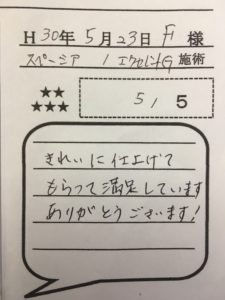 H 30年 5月23日 F 様
スペーシア / エクセレントG 施術
★★
★★★
5 / 5
きれいに仕上げて
もらって満足しています
ありがとうございます!